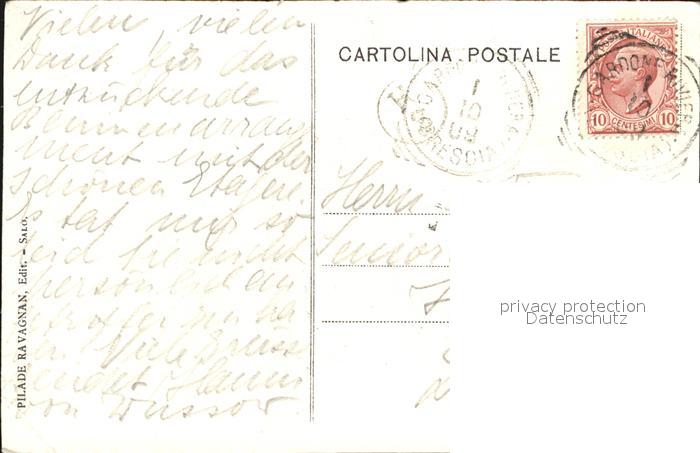 Vielen, vielen
Dank für das
entzückende
Blumenarrange
ment mit der
schönen Etagere.
Es tat mir so
leid Sie nicht
persönlich an
getroffen zu ha
ben. Viele Grüsse
sendet Hanna
von Wussow.
PILADE RAVAGNAN, Edit. - SALO.
CARTOLINA POSTALE
POSTE ITALIANE
10 10
CENTESIMI
GARDONE RIVIERA
BRESCIA
1
10
GARDONE RIVIERA
1
10
Herrn
Senior
privacy protection
Datenschutz